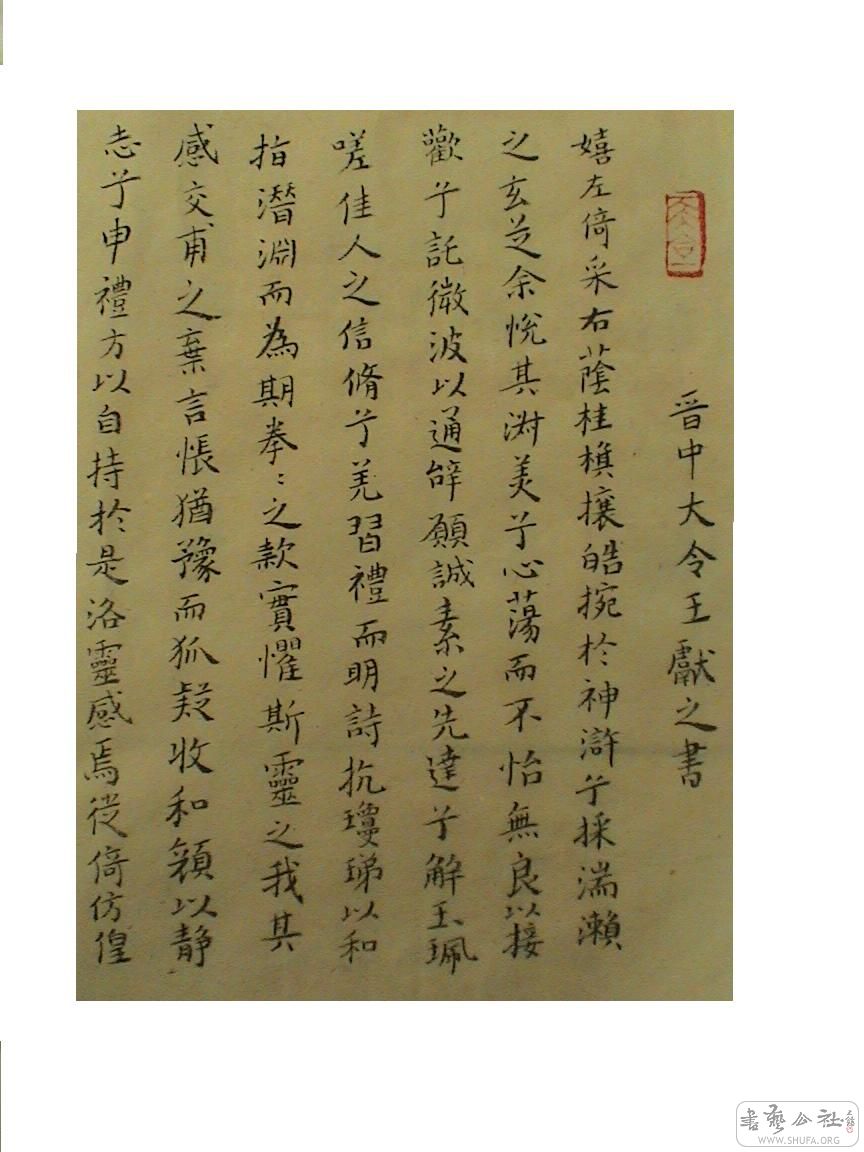 晋中大令王獻之書
嬉左倚采右蔭桂檱攘皓捥於神滸兮採湍瀨
之玄芝余悅其淑美兮心蕩而不怡無良以接
歡兮託微波以通辭願誠素之先達兮解玉珮
嗟佳人之信脩兮羌習禮而明詩抗瓊珶以和
指潛淵而為期拳〻之款實懼斯靈之我其
感交甫之棄言悵猶豫而狐疑收和顏以静
志兮申禮方以自持於是洛靈感焉徙倚仿偟
書藝公社
WWW.SHUFA.ORG